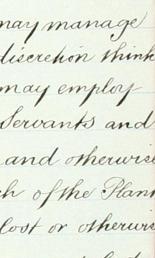 may manage
discretion think
may employ
Servants and
and otherwise
of the Plant
lost or otherwise